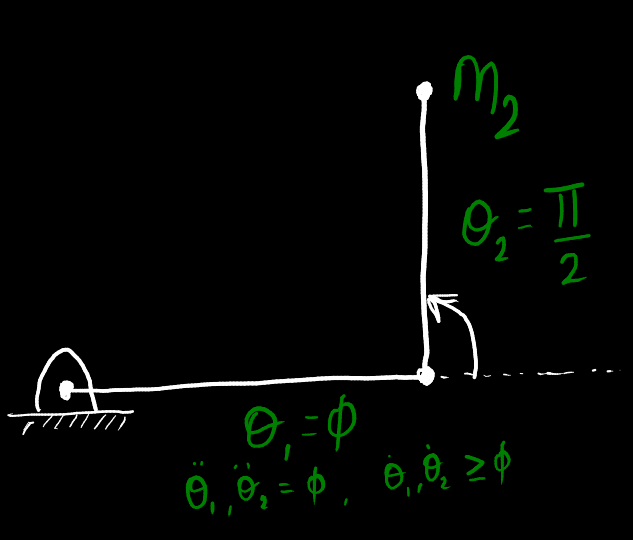 m₂
θ₂ = π/2
θ₁ = ϕ
θ̈₁, θ̈₂ = ϕ, θ̇₁, θ̇₂ ≥ ϕ